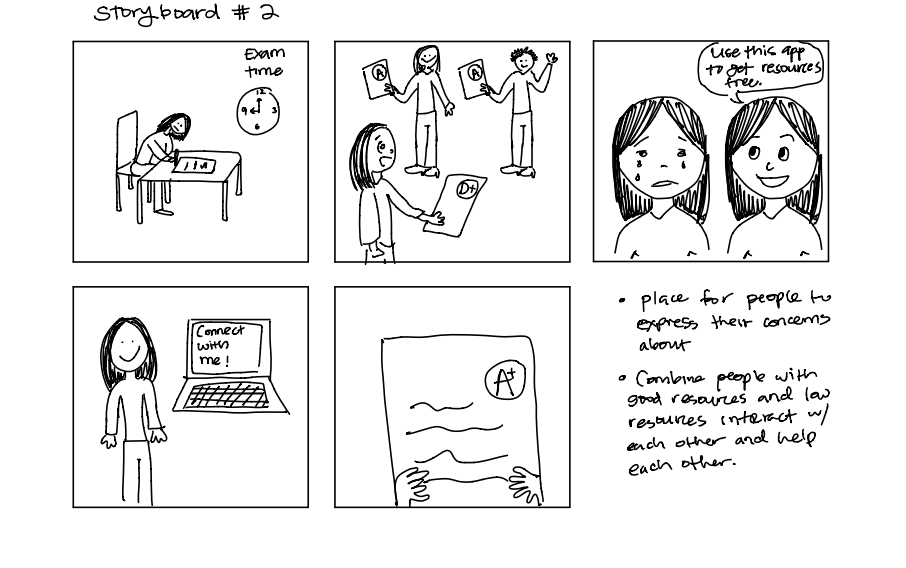 Storyboard # 2
Exam
time
12
9 3
6
A
A
D+
Use this app
to get resources
free.
Connect
with
me!
A+
• place for people to
express their concerns
about
• Combine people with
good resources and low
resources interact w/
each other and help
each other.